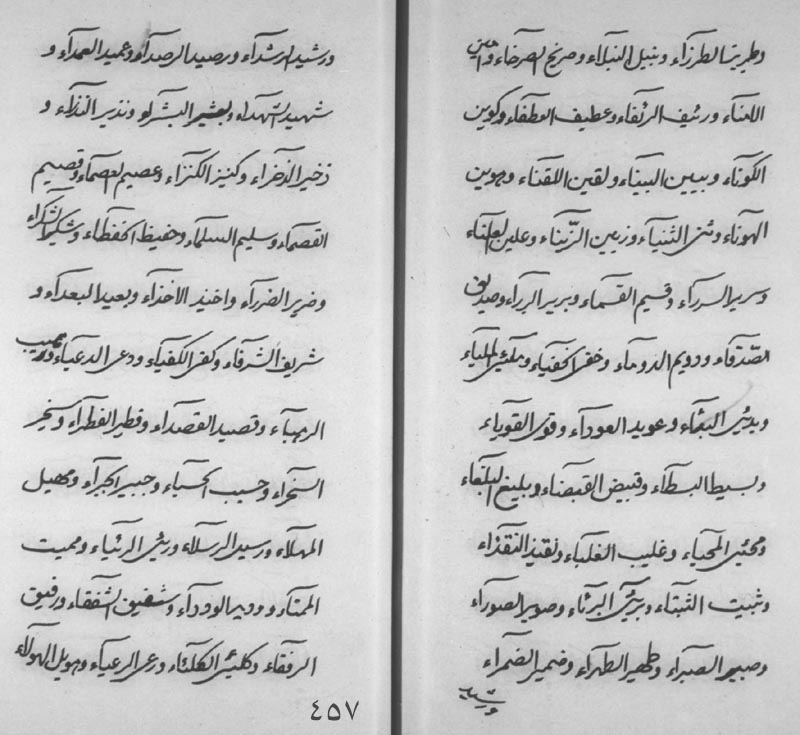 وطريز الطرزاء ونبيل النبلاء وصرنح الصرخاء وامين
الامناء ورئيف الرئفاء وعطيف العطفاء وكوين
الكوناء وبيين البيناء ولقين اللقناء وهوين
الهوناء وثنى الثنياء وزيين الزيناء وعلين العلناء
وسرير السرراء وقسيم القسماء وبرير البرراء وصديق
الصدقاء ودويم الدوماء وخفى الخفياء ومليئ الملياء
وبدئى البدئاء وعويد العوداء وقوى القوياء
وبسيط البسطاء وقبيض القبضاء وبليغ البلغاء
ومحيى المحياء وغليب الغلباء ونقيذ النقذاء
وثبيت الثبتاء وبرئى البرئاء وصوير الصوراء
وصبير الصبراء وظهير الظهراء وضمير الضمراء
ورشيد
ورشيد الرشداء ورصيد الرصداء وعميد العمداء و
شهيد الشهداء وبشير البشراء ونذير النذراء و
ذخير الذخراء وكنيز الكنزاء وعصيم العصماء وقصيم
القصماء وسليم السلماء وحفيظ الحفظاء وشكير الشكراء
وضرير الضرراء واخيذ الاخذاء وبعيد البعداء و
شريف الشرفاء وكفى الكفياء ودعى الدعياء ورهيب
الرهباء وقصيد القصداء وفطير الفطراء وسخير
السخراء وحسيب الحسباء وجبير الجبراء ومهيل
المهلاء ورسيل الرسلاء ورئى الرئياء ومميت
الممتاء ووديد الودداء وشفيق الشفقاء ورفيق
الرفقاء وكليئ الكلئاء ورعى الرعياء وهويل الهولاء
٤٥٧